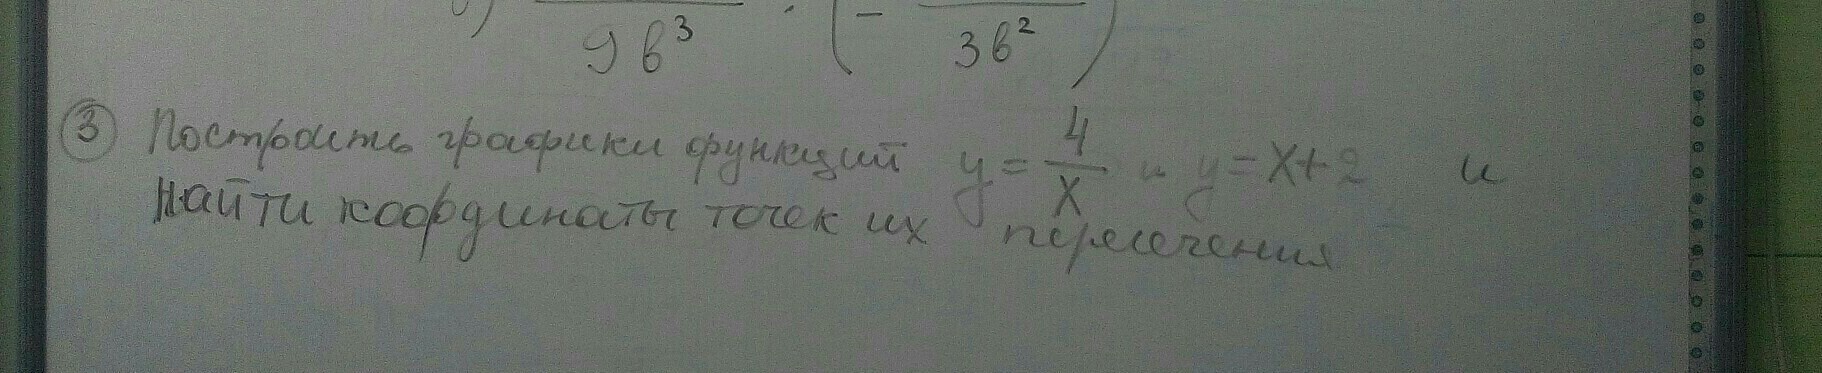 б) 9b³ · (- 3b²)
③ Построить графики функций y = 4/x и y = x + 2 и
найти координаты точек их пересечения